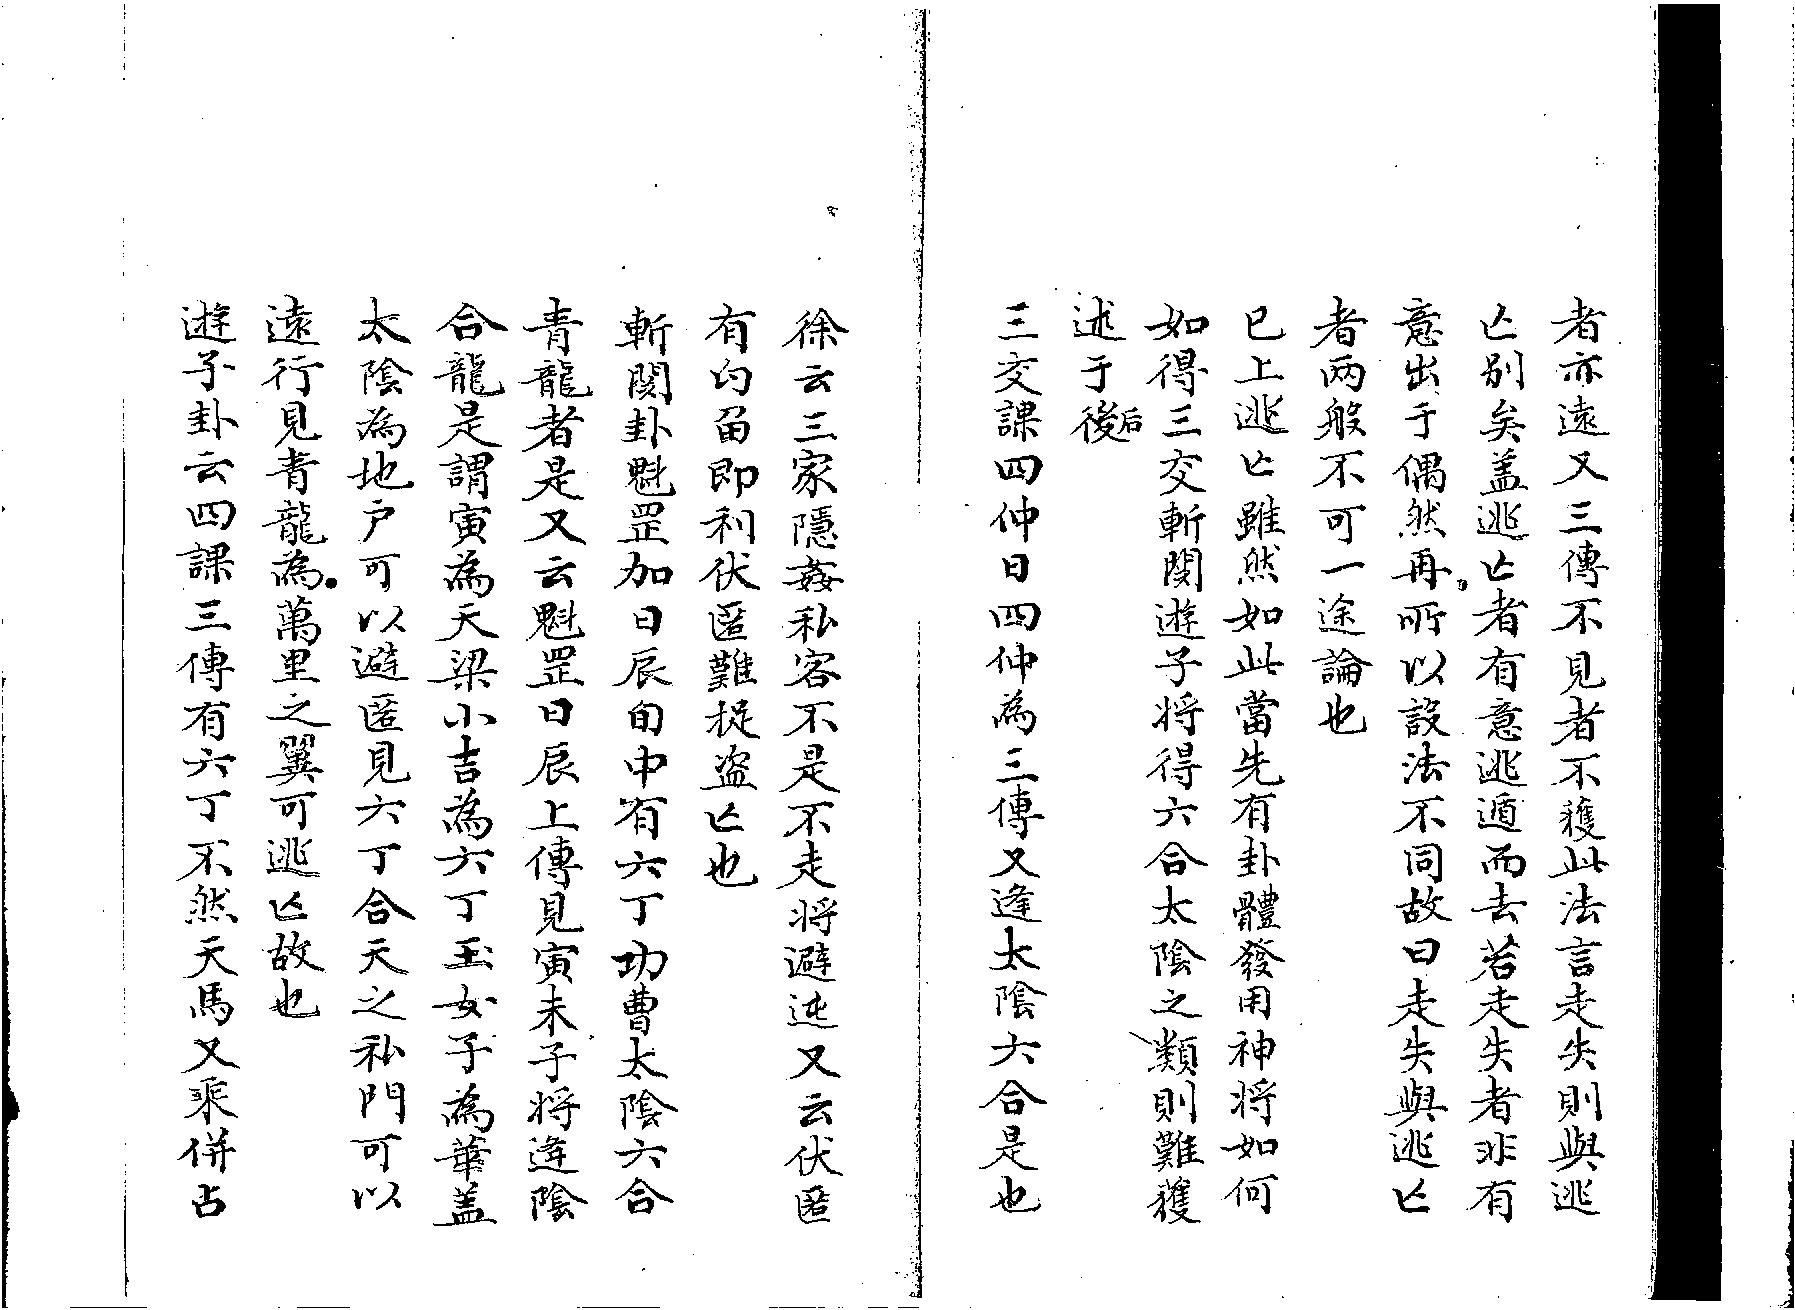 者亦遠又三傳不見者不獲此法言走失則與逃
亡別矣盖逃亡者有意逃遁而去若走失者非有
意出于偶然再所以設法不同故曰走失與逃亡
者兩般不可一途論也
已上逃亡雖然如此當先有卦體發用神将如何
如得三交斬関遊子将得六合太陰之類則難獲
述于後后
三交課四仲日四仲為三傳又逢太陰六合是也
徐云三家隱姦私客不是不走将避迍又云伏匿
有勾畄即利伏匿難捉盗亡也
斬関卦魁罡加日辰旬中有六丁功曹太陰六合
青龍者是又云魁罡日辰上傳見寅未子将逢陰
合龍是謂寅為天梁小吉為六丁玉女子為華盖
太陰為地户可以避匿見六丁合天之私門可以
遠行見青龍為萬里之翼可逃亡故也
遊子卦云四課三傳有六丁不然天馬又乘併占